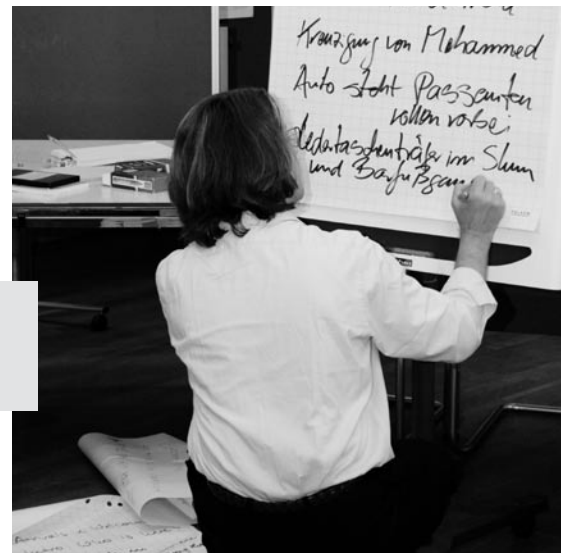 Kreuzigung von Mohammed
Auto steht Passanten
rollen vorbei
Ledertaschenträger im Slum
und Barfußgan